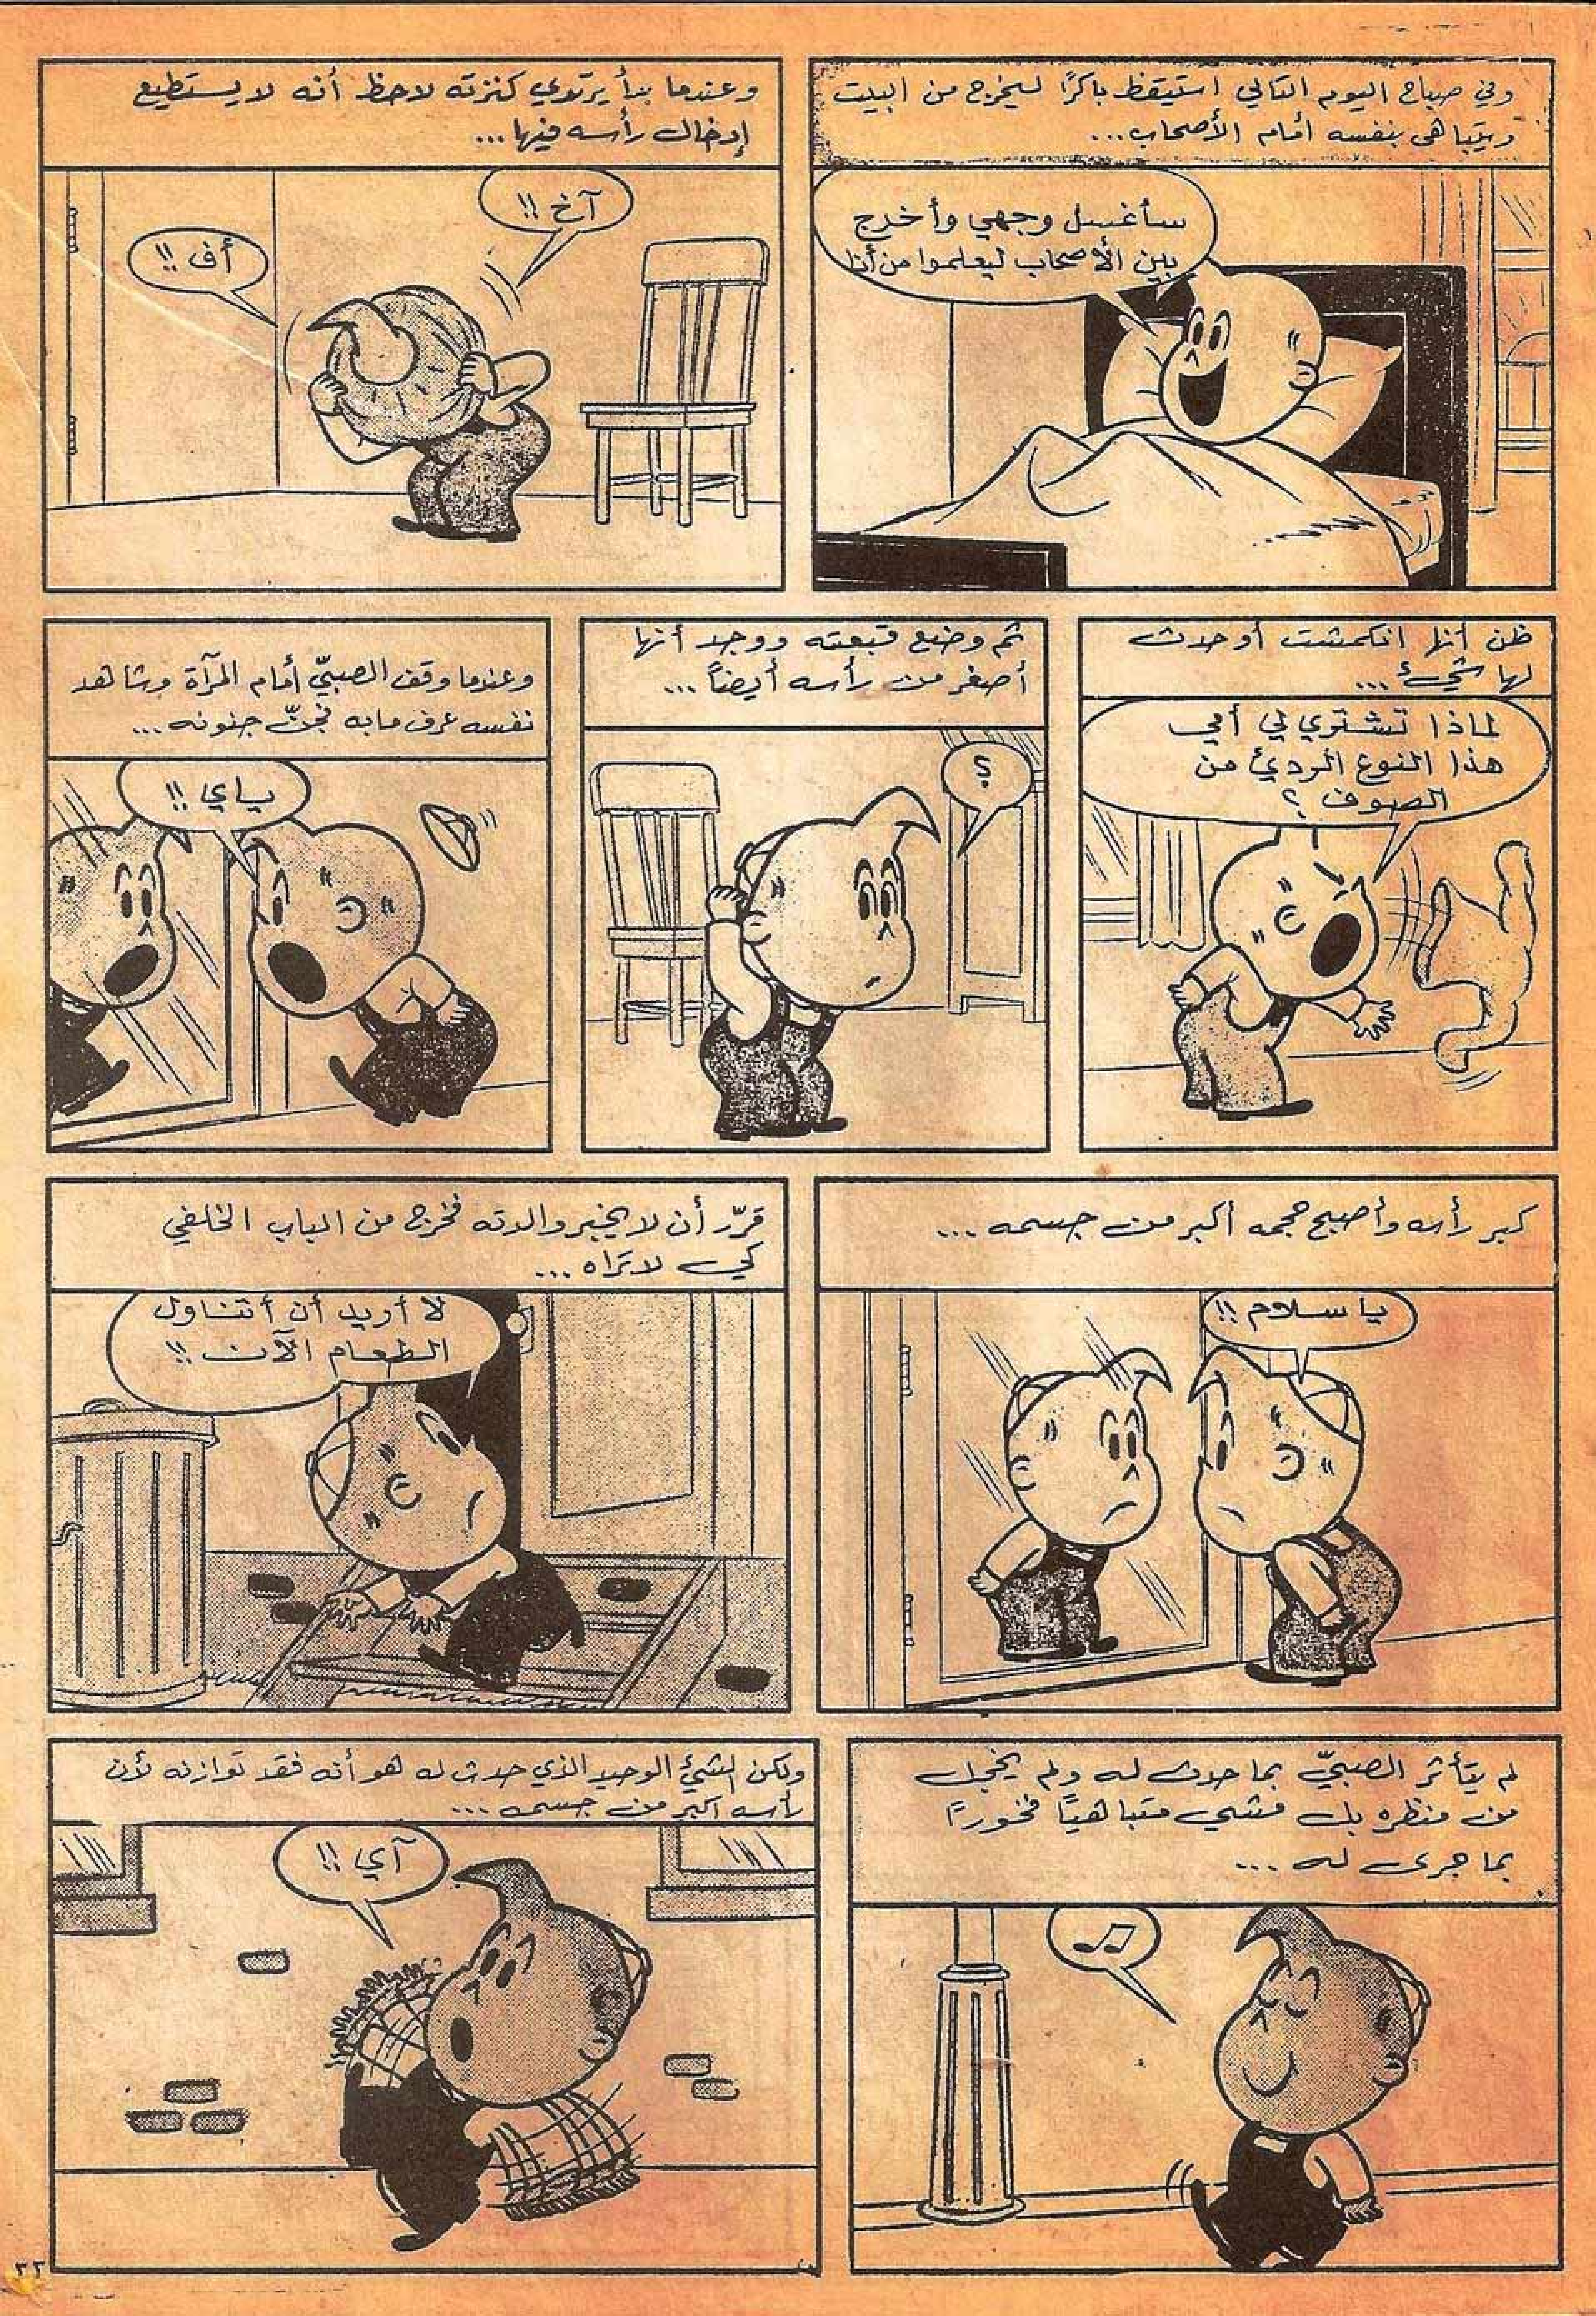 وفي صباح اليوم التالي استيقظ باكرًا ليخرج من البيت
ويتباهى بنفسه أمام الأصحاب...
سأغسل وجهي وأخرج
بين الأصحاب ليعلموا من أنا
وعندما بدأ يرتدي كنزته لاحظ أنه لا يستطيع
إدخال رأسه فيها...
آخ !!
أف !!
ظن أنها انكمشت أو حدث
لها شيئ...
لماذا تشتري لي أمي
هذا النوع الرديئ من
الصوف ؟
ثم وضع قبعته ووجد أنها
أصغر من رأسه أيضاً...
؟
وعندما وقف الصبيّ أمام المرآة وشاهد
نفسه عرف ما به فجنّ جنونه...
ياي !!
كبر رأسه وأصبح حجمه أكبر من جسمه...
يا سلام !!
قرّر أن لا يخبر والدته فخرج من الباب الخلفي
كي لا تراه...
لا أريد أن أتناول
الطعام الآن !!
لم يتأثر الصبيّ بما حدث له ولم يخجل
من منظره بل مشى متباهيًا فخورًا
بما جرى له...
ولكن الشيئ الوحيد الذي حدث له هو أنه فقد توازنه لأن
رأسه أكبر من جسمه...
آي !!
٣٢